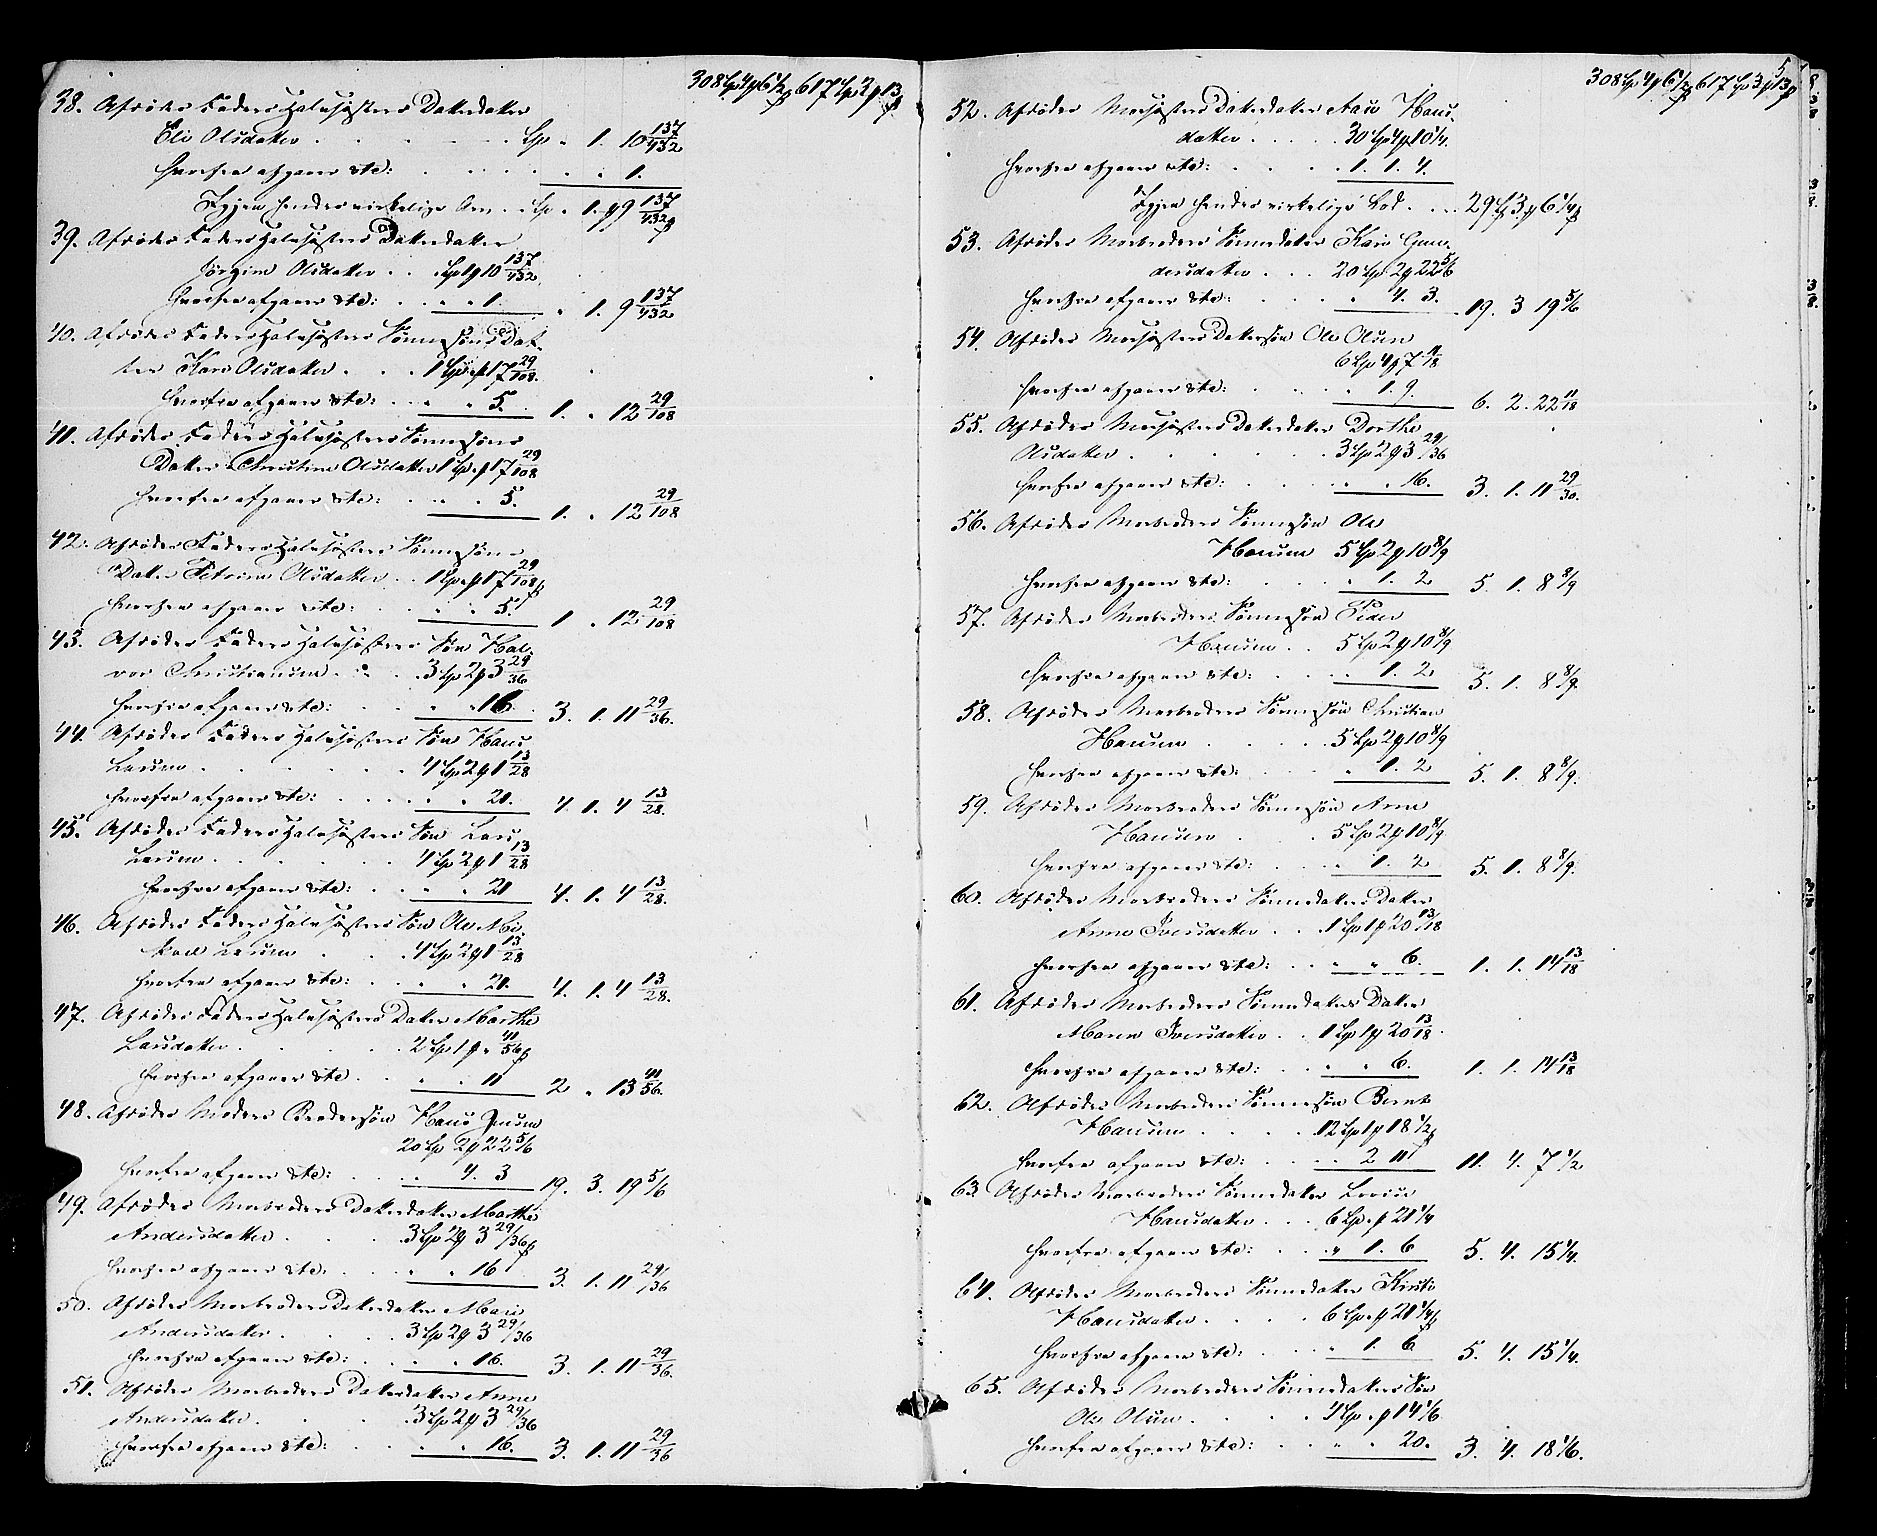 308 Sp 4 ß 6 1/2 617 Sp 2 ß 13
38. Afdødes Faders Halvsøsters Datterdatter
Eli Olsdatter . . . Sp „ 1. 10 137/432
hvorfra afgaaer etc: . . . . 1.
Igjen hendes virkelige Arv . Sp „ 1. 9 137/432
39. Afdødes Faders Halvsøsters Datterdatter
Jørgine Olsdatter . . Sp „ 1 10 137/432
hvorfra afgaaer etc: . . „ „ 1. „ 1. 9 137/432
40. Afdødes Faders Halvsøsters Sønnesøns Dat-
ter Kari Olsdatter . . . 1 Sp „ 17 29/108.
hvorfra afgaaer etc: . . „ „ 5. 1. „ 12 29/108
41. Afdødes Faders Halvsøsters Sønnesøns
Datter Christine Olsdatter 1 Sp „ 17 29/108
hvorfra afgaaer etc: . . „ „ 5. 1. „ 12 29/108
42. Afdødes Faders Halvsøsters Sønnesøns
Datter Petrine Olsdatter . . 1 Sp „ 17 29/108
hvorfra afgaaer etc: . . „ „ 5. 1 „ 12 29/108
43. Afdødes Faders Halvsøsters Søn Hal-
vor Christiansen . . . 3 Sp 2 3 29/36
hvorfra afgaaer etc: . . „ „ 16. 3. 1. 11 29/36.
44. Afdødes Faders Halvsøsters Søn Hans
Larsen . . . . 4 Sp 2 1 13/28
hvorfra afgaaer etc: . . . „ „ 21. 4. 1. 4 13/28.
45. Afdødes Faders Halvsøsters Søn Lars
Larsen . . . . 4 Sp 2 1 13/28
hvorfra afgaaer etc: . . „ „ 21 4. 1. 4 13/28.
46. Afdødes Faders Halvsøsters Søn Ole Mi-
kael Larsen . . . 4 Sp 2 1 13/28
hvorfra afgaaer etc: . . „ „ 21. 4. 1. 4 13/28.
47. Afdødes Faders Halvsøsters Datter Marthe
Larsdatter . . . . 2 Sp 1 „ 41/56
hvorfra afgaaer etc . . „ „ 11 2 „ 13 41/56.
48. Afdødes Moders Brodersøn Hans Jensen
20 Sp 2 22 5/6
hvorfra afgaaer etc: . . . „ 4. 3 19. 3. 19 5/6
49. Afdødes Morbroders Datterdatter Marthe
Andersdatter . . . 3 Sp 2 3 29/36
hvorfra afgaaer etc. . . „ „ 16 3. 1. 11 29/36
50. Afdødes Morbroders Datterdatter Mari
Andersdatter . . . 3 Sp 2 3 29/36
hvorfra afgaaer etc: . . „ „ 16. 3. 1. 11 29/36.
51. Afdødes Morbroders Datterdatter Anne
Andersdatter . . . 3 Sp 2 3 29/36
hvorfra afgaaer etc: . . „ „ 16. 3. 1. 11 29/36
5
308 Sp 4 ß 6 1/2 617 Sp 3 ß 13
52. Afdødes Morsøsters Datterdatter Aase Hans-
datter . . . . 30 Sp 4 10 1/4.
hvorfra afgaaer etc: . . . 1. 1. 4.
Igjen hendes virkelige Lod . . . 29 Sp 3 6 1/4
53. Afdødes Morbroders Sønnedatter Kari Gun-
dersdatter . . . 20 Sp 2 22 5/6
hvorfra afgaaer etc: . . . „ 4. 3. 19. 3 19 5/6
54. Afdødes Morsøsters Dattersøn Ole Olsen
6 Sp 4 7 11/18
hvorfra afgaaer etc: . . . „ 1. 9. 6. 2. 22 11/18
55. Afdødes Morsøsters Datterdatter Dorthe
Olsdatter . . . . 3 Sp 2 3 29/36
hvorfra afgaaer etc: . . . „ „ 16. 3. 1. 11 29/30.
56. Afdødes Morbroders Sønnesøn Ole
Hansen 5 Sp 2 10 8/9
hvorfra afgaaer etc: . . . „ 1. 2 5. 1. 8 8/9
57. Afdødes Morbroders Sønnesøn Peder
Hansen . . 5 Sp 2 10 8/9
hvorfra afgaaer etc: . . . „ 1. 2 5. 1. 8 8/9.
58. Afdødes Morbroders Sønnesøn Christian
Hansen . . . . 5 Sp 2 10 8/9
hvorfra afgaaer etc: . . . „ 1. 2 5. 1. 8 8/9.
59. Afdødes Morbroders Sønnesøn Arne
Hansen . . . 5 Sp 2 10 8/9
hvorfra afgaaer etc: . . . „ 1. 2 5. 1. 8 8/9.
60. Afdødes Morbroders Sønnedatters Datter
Anne Iversdatter . . 1 Sp 1 20 13/18
hvorfra afgaaer etc: . . „ „ 6. 1. 1. 14 13/18
61. Afdødes Morbroders Sønnedatters Datter
Maren Iversdatter . . 1 Sp 1 20 13/18.
hvorfra afgaaer etc: . . „ „ 6. 1. 1. 14 13/18
62. Afdødes Morbroders Sønnesøn Bernt
Hansen . . . . 12 Sp 1 18 1/2
hvorfra afgaaer etc: . . . 2 11 11. 4. 7 1/2
63. Afdødes Morbroders Sønnedatter Lovise
Hansdatter . . . 6 Sp „ 21 1/4
hvorfra afgaaer etc: . . . „ 1. 6 5. 4. 15 1/4.
64. Afdødes Morbroders Sønnedatter Kirsti
Hansdatter . . . . 6 Sp „ 21 1/4
hvorfra afgaaer etc: . . . „ 1. 6 5. 4. 15 1/4.
65. Afdødes Morbroders Sønnedatters Søn
Ole Olsen . . . . 4 Sp „ 14 1/6.
hvorfra afgaaer etc: . . „ „ 20. 3. 4. 18 1/6.